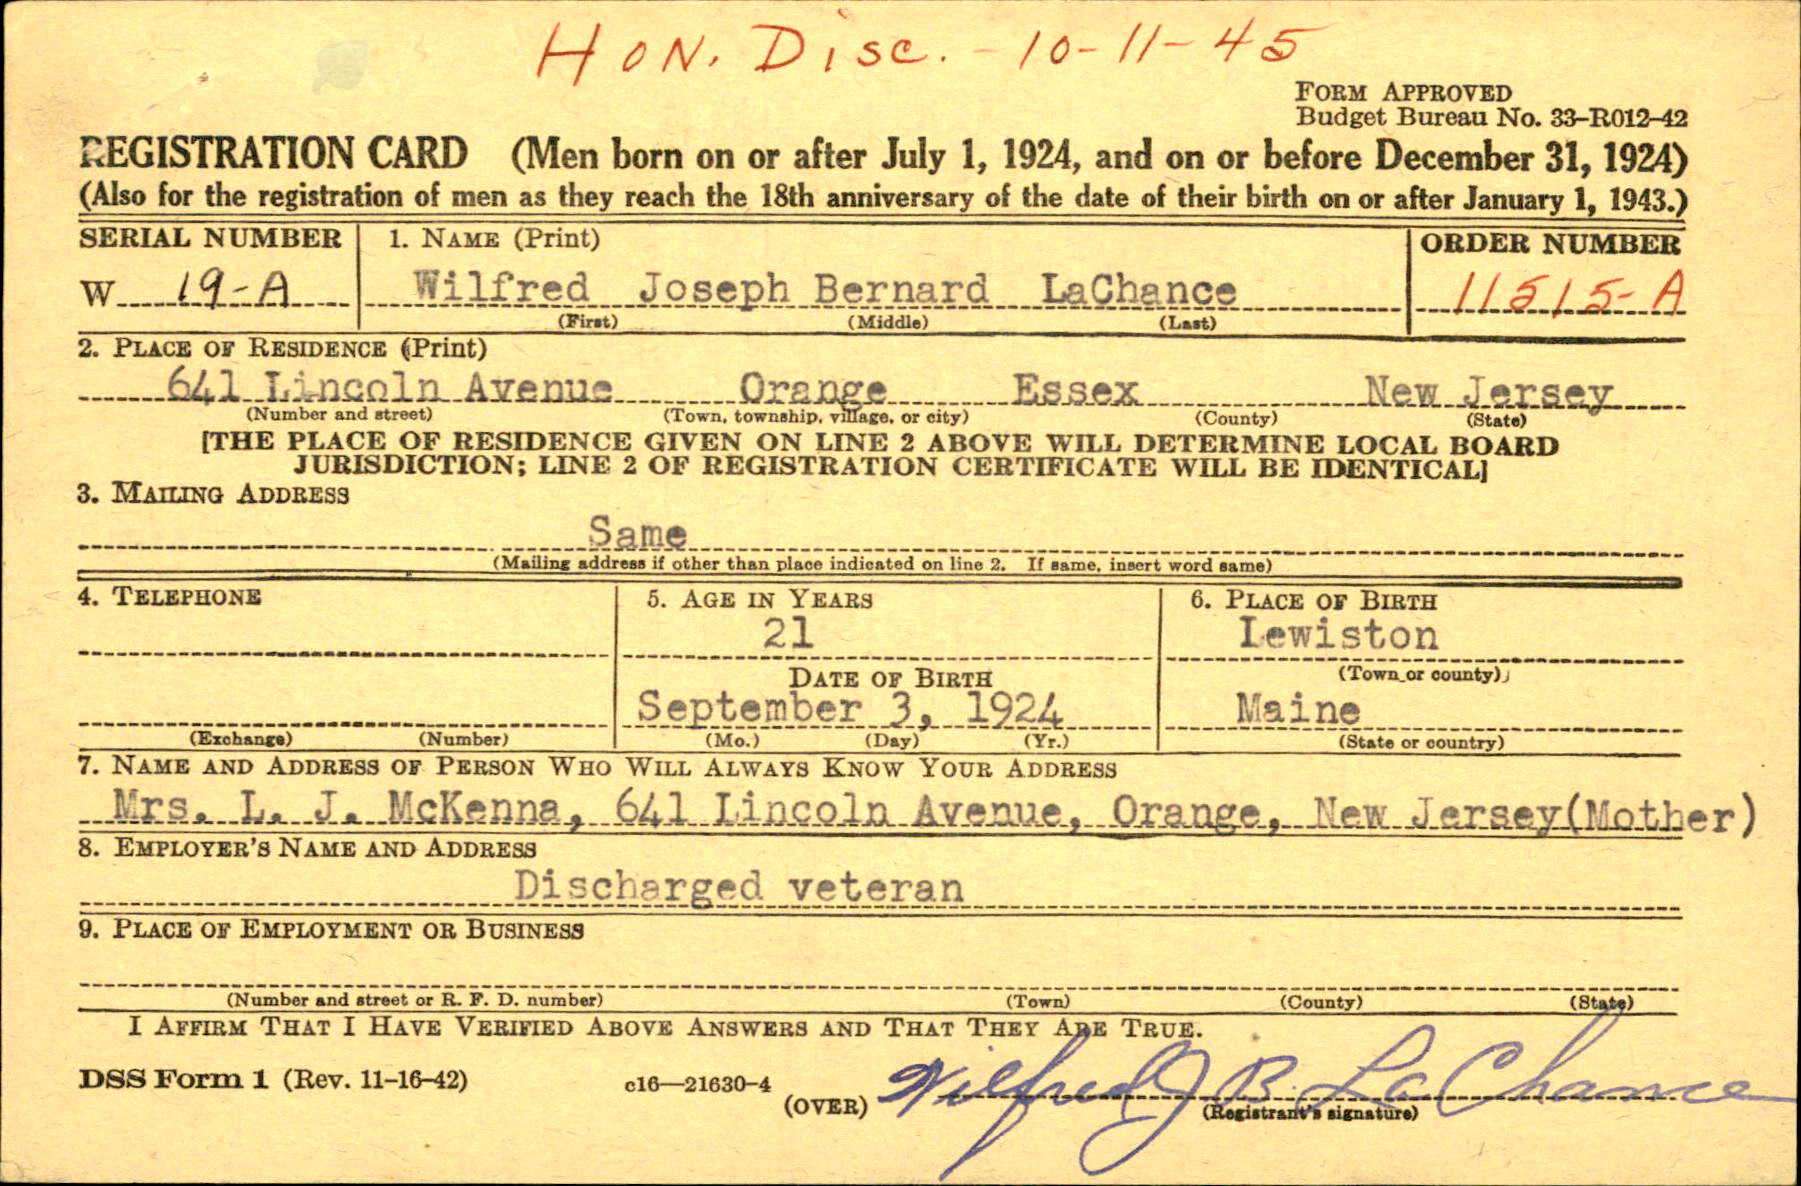 HON. Disc. - 10-11-45
FORM APPROVED
Budget Bureau No. 33–R012–42
REGISTRATION CARD (Men born on or after July 1, 1924, and on or before December 31, 1924)
(Also for the registration of men as they reach the 18th anniversary of the date of their birth on or after January 1, 1943.)
SERIAL NUMBER 1. NAME (Print) ORDER NUMBER
W 19-A Wilfred Joseph Bernard LaChance 11515-A
(First) (Middle) (Last)
2. PLACE OF RESIDENCE (Print)
641 Lincoln Avenue Orange Essex New Jersey
(Number and street) (Town, township, village, or city) (County) (State)
[THE PLACE OF RESIDENCE GIVEN ON LINE 2 ABOVE WILL DETERMINE LOCAL BOARD
JURISDICTION; LINE 2 OF REGISTRATION CERTIFICATE WILL BE IDENTICAL]
3. MAILING ADDRESS
Same
(Mailing address if other than place indicated on line 2. If same, insert word same)
4. TELEPHONE 5. AGE IN YEARS 6. PLACE OF BIRTH
21 Lewiston
DATE OF BIRTH (Town or county)
September 3, 1924 Maine
(Exchange) (Number) (Mo.) (Day) (Yr.) (State or country)
7. NAME AND ADDRESS OF PERSON WHO WILL ALWAYS KNOW YOUR ADDRESS
Mrs. L. J. McKenna, 641 Lincoln Avenue, Orange, New Jersey(Mother)
8. EMPLOYER'S NAME AND ADDRESS
Discharged veteran
9. PLACE OF EMPLOYMENT OR BUSINESS
(Number and street or R. F. D. number) (Town) (County) (State)
I AFFIRM THAT I HAVE VERIFIED ABOVE ANSWERS AND THAT THEY ARE TRUE.
DSS Form 1 (Rev. 11–16–42) c16—21630-4 (OVER) Wilfred J B. LaChance
(Registrant's signature)